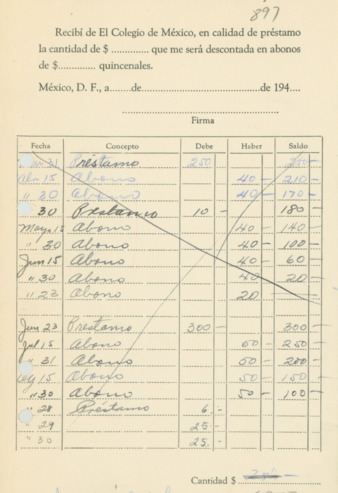 897
Recibí de El Colegio de México, en calidad de préstamo
la cantidad de $ .............. que me será descontada en abonos
de $............. quincenales.
México, D. F., a.......de.......................................de 194....
Firma
Fecha Concepto Debe Haber Saldo
31 Préstamo 250
Abr 15 Abono 40 — 210 —
" 30 Abono 40 — 170 —
30 Préstamo 10 — 180 —
Mayo 15 Abono 40 — 140 —
" 30 Abono 40 — 100 —
Jun 15 Abono 40 — 60 —
" 30 Abono 40 — 20 —
" 23 Abono 20 —
Jun 23 Préstamo 300 — 300 —
Jul 15 Abono 50 — 250 —
" 31 Abono 50 — 200 —
15 Abono 50 — 150 —
" 30 Abono 50 — 100 —
" 28 Préstamo 6.-
" 29 25 —
" 30 25.—
Cantidad $